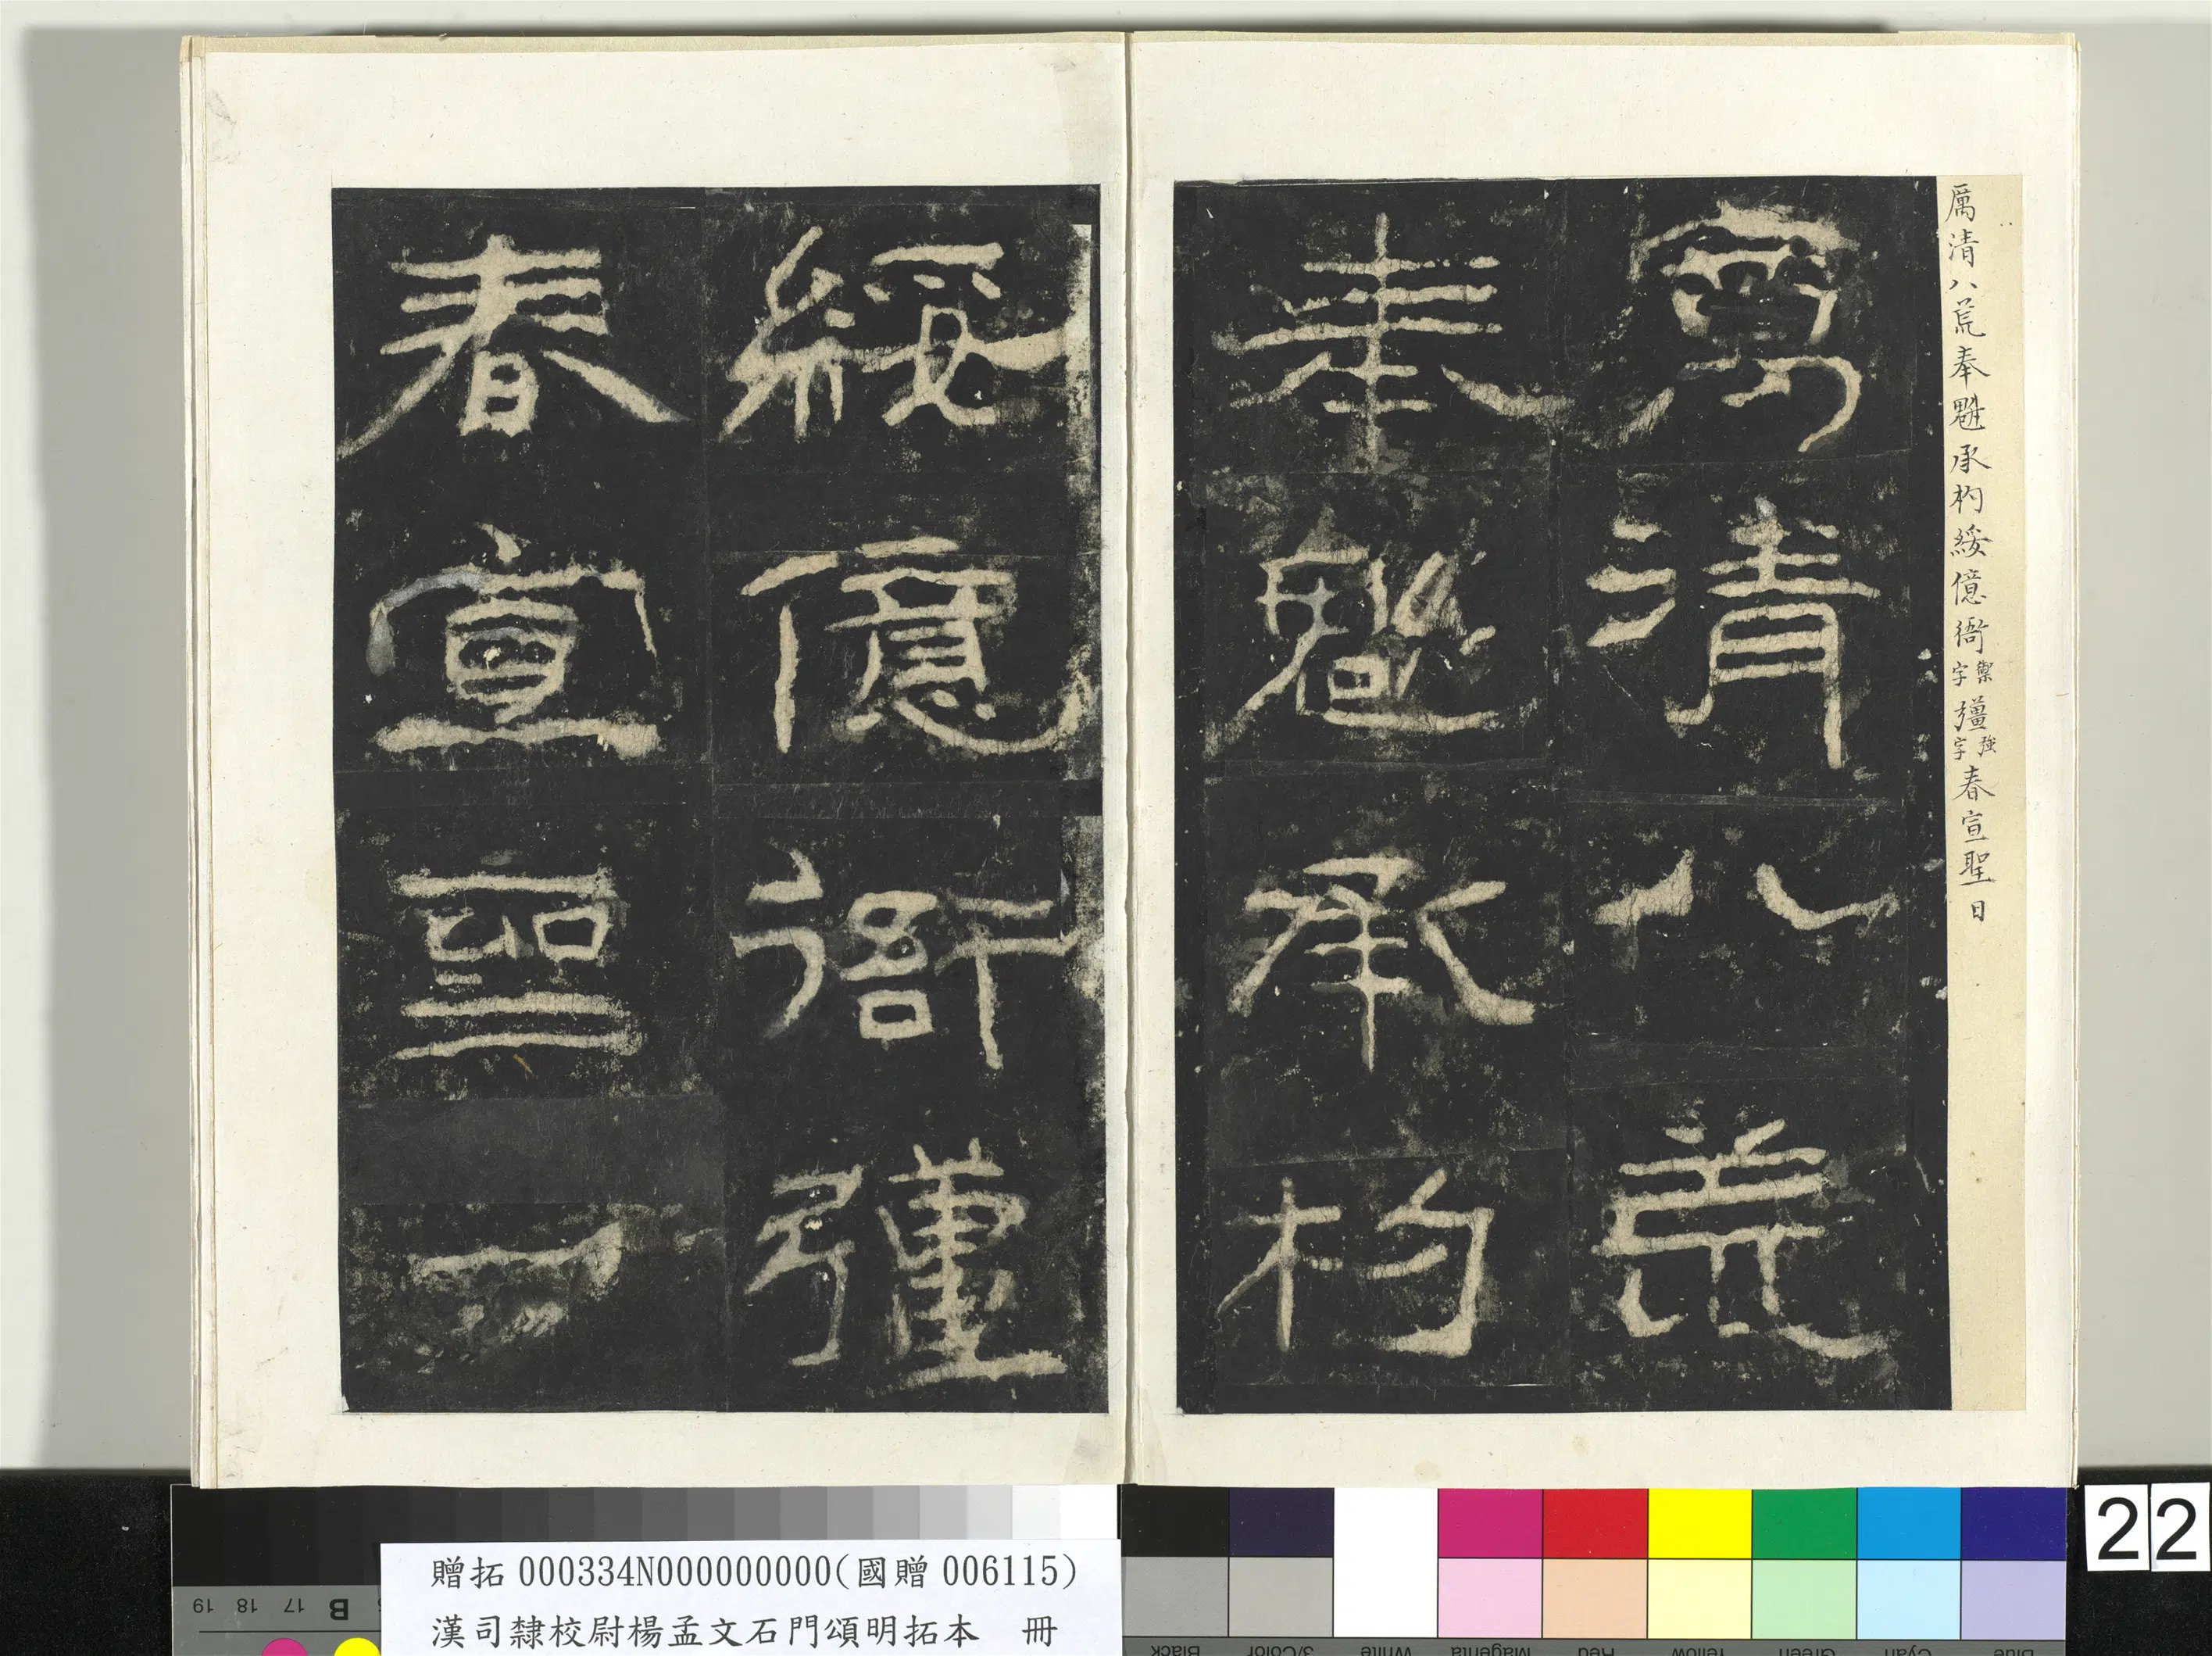 厲清八荒奉魁承杓綏億衙禦字彊強字春宣聖日
厲清八荒
奉魁承杓
綏億衙彊
春宣聖
贈拓000334N000000000(國贈006115)
漢司隸校尉楊孟文石門頌明拓本 冊
22
19 18 17 B
Black 3/Color White Magenta Red Yellow Green Cyan Blue